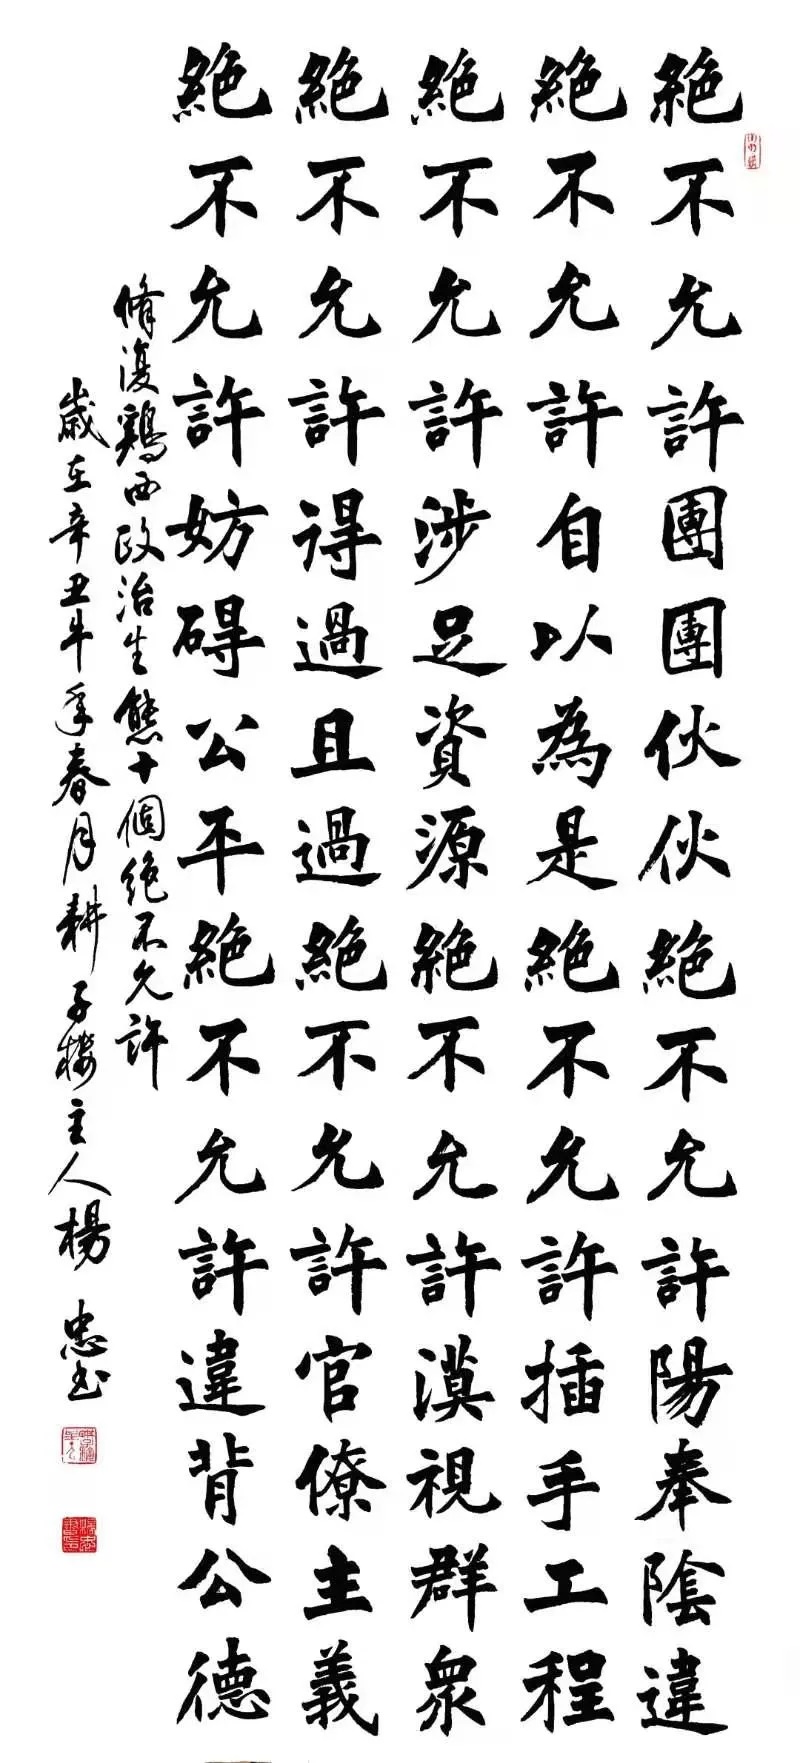 絶不允許團團伙伙絶不允許陽奉陰違
絶不允許自以為是絶不允許插手工程
絶不允許涉足資源絶不允許漠視群衆
絶不允許得過且過絶不允許官僚主義
絶不允許妨碍公平絶不允許違背公德
脩復鷄西政治生態十個絶不允許
歲在辛丑牛年春月耕子樓主人楊忠書